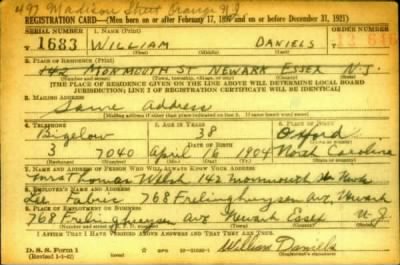 497 Madison Street Orange N J
REGISTRATION CARD—(Men born on or after February 17, 1897 and on or before December 31, 1921)
SERIAL NUMBER 1. NAME (Print) ORDER NUMBER
T 1683 WILLIAM DANIELS
2. PLACE OF RESIDENCE (Print)
142 MONMOUTH ST NEWARK ESSEX N.J.
[THE PLACE OF RESIDENCE GIVEN ON THE LINE ABOVE WILL DETERMINE LOCAL BOARD
JURISDICTION; LINE 2 OF REGISTRATION CERTIFICATE WILL BE IDENTICAL]
3. MAILING ADDRESS
Same Address
[Mailing address if other than place indicated on line 2. If same insert word same]
4. TELEPHONE 5. AGE IN YEARS 6. PLACE OF BIRTH
Bigelow 38 Oxford
DATE OF BIRTH
3 7040 April 16 1904 North Carolina
7. NAME AND ADDRESS OF PERSON WHO WILL ALWAYS KNOW YOUR ADDRESS
Mrs Thomas Welsh 142 Monmouth St Newark
8. EMPLOYER'S NAME AND ADDRESS
Lee Fabrics 768 Frelinghuysen Ave, Newark
9. PLACE OF EMPLOYMENT OR BUSINESS
768 Frelinghuysen Ave Newark Essex N.J.
I AFFIRM THAT I HAVE VERIFIED ABOVE ANSWERS AND THAT THEY ARE TRUE.
D. S. S. Form 1
(Revised 1-1-42)
William Daniels
(Registrant's signature)